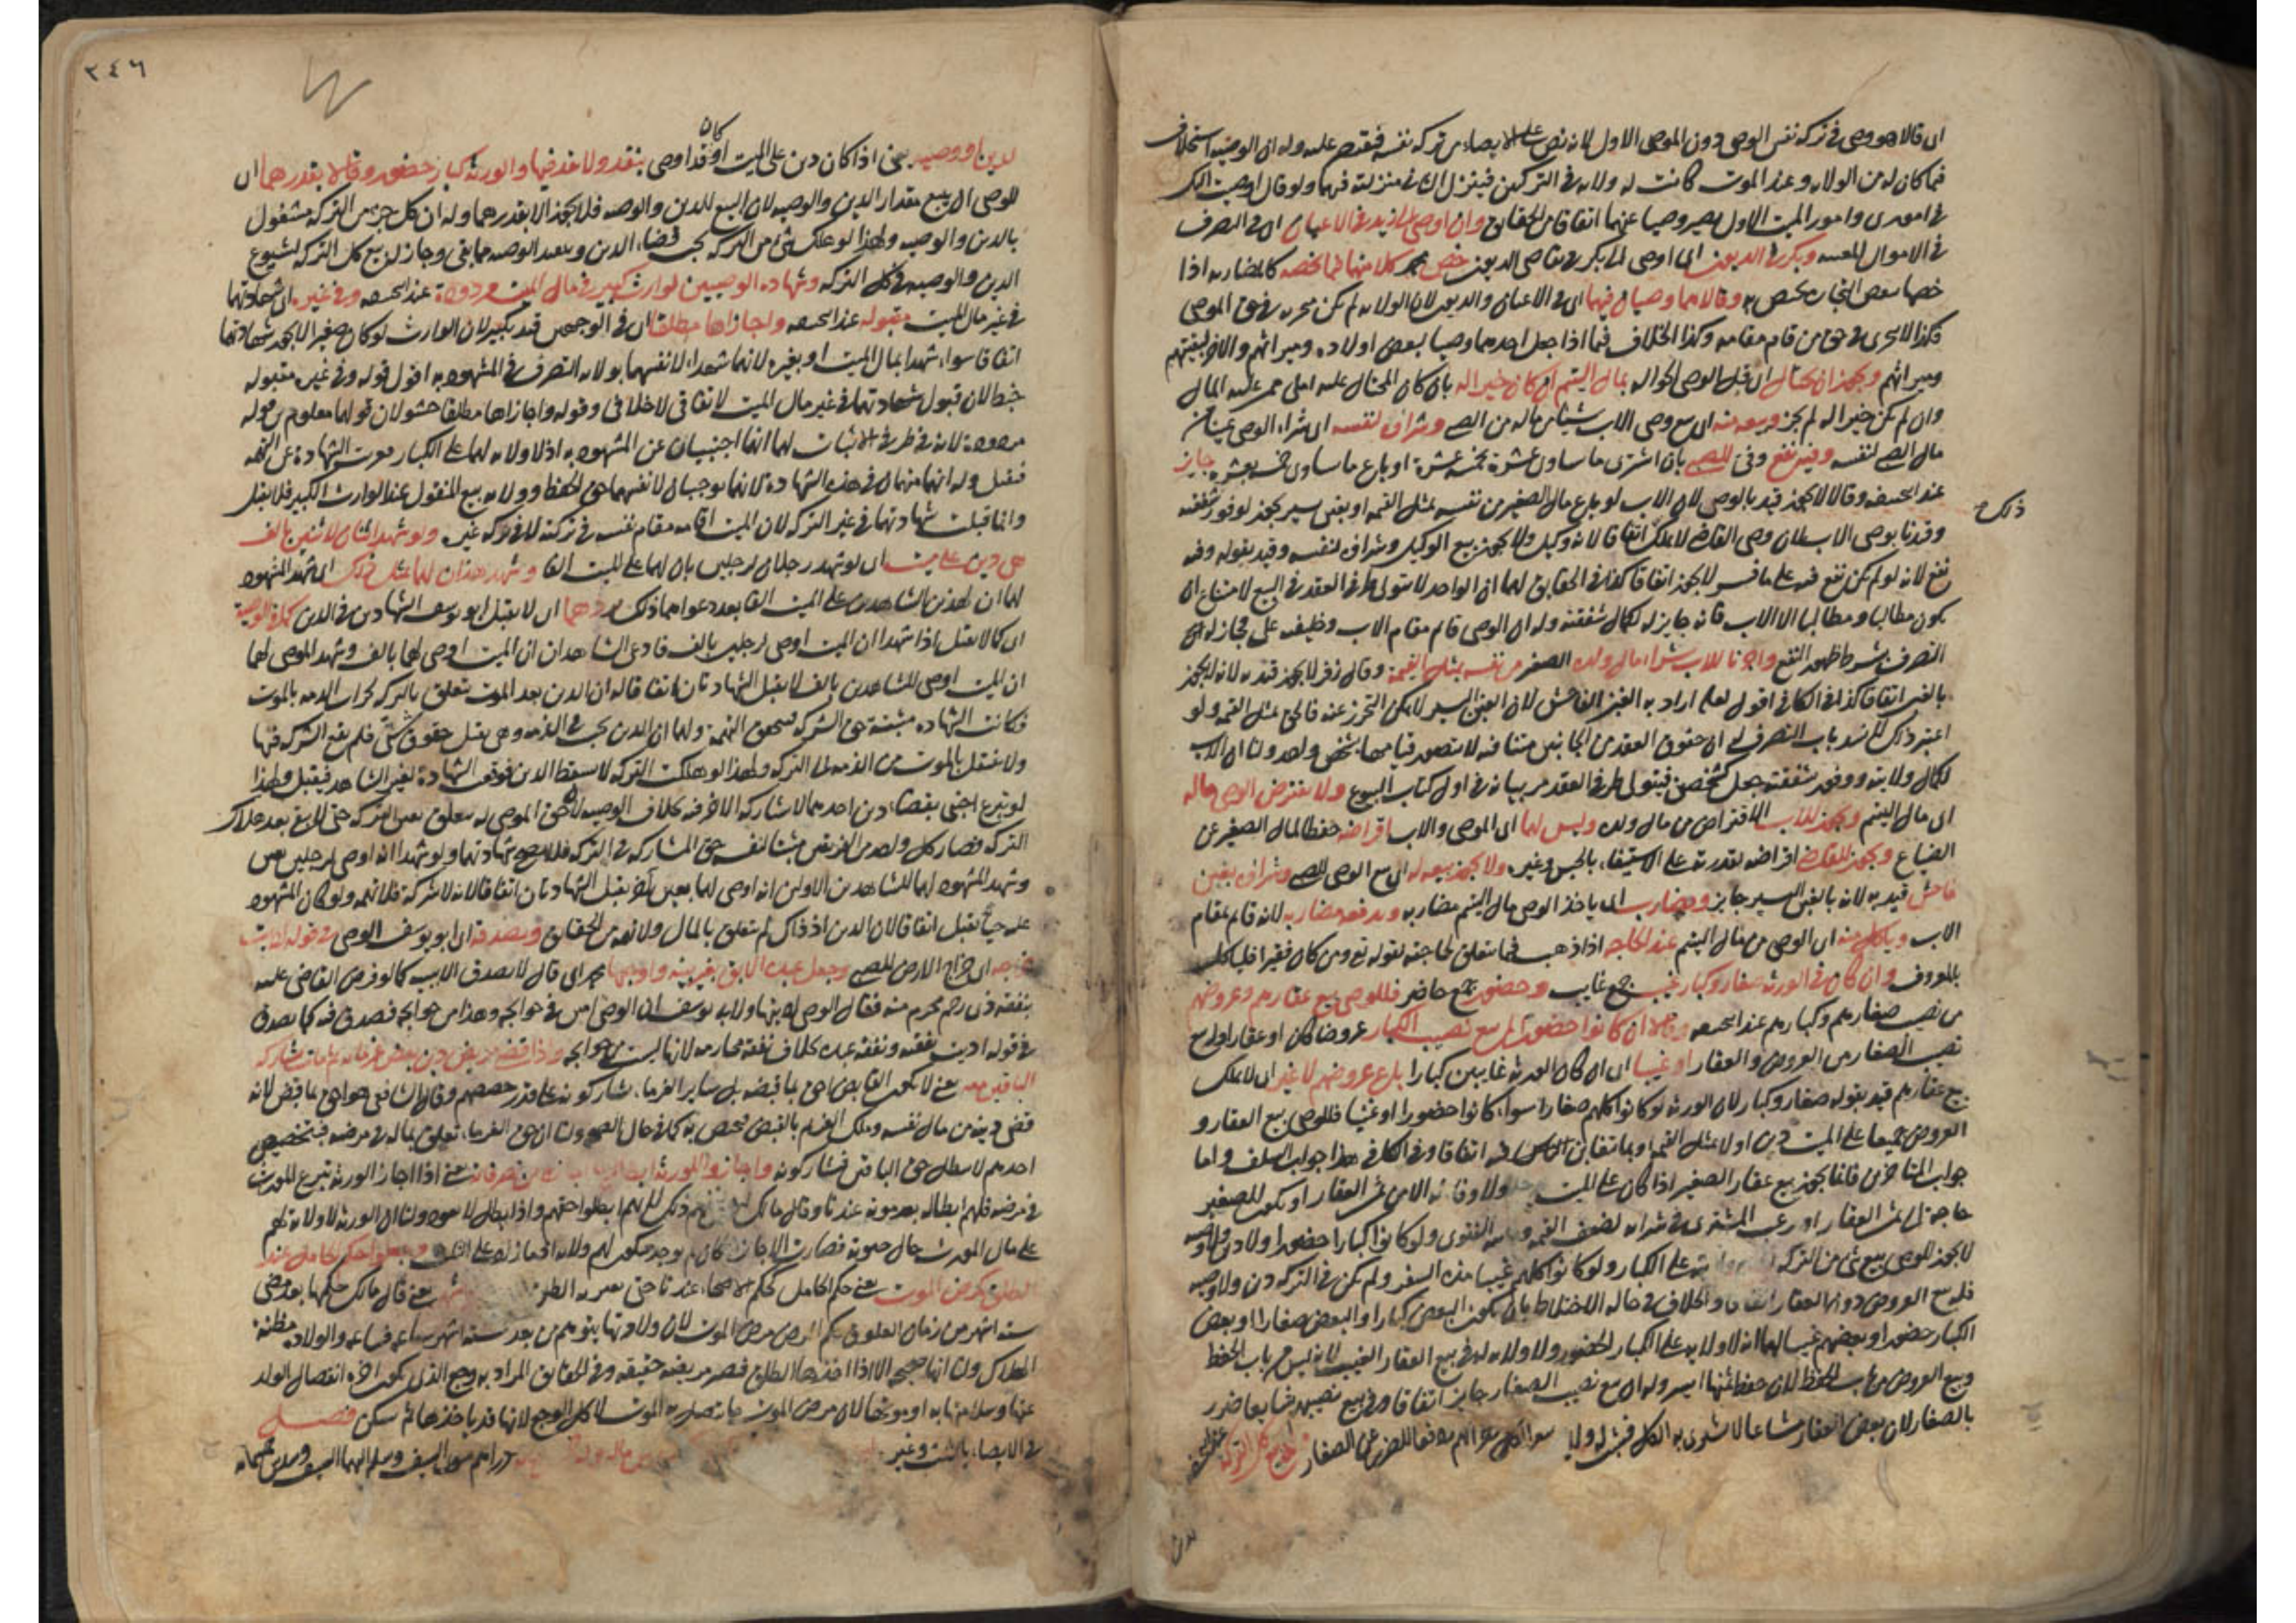 اى قالا هو وصى فى تركة نفس الوصى دون الموصى الاول لانه نص على الايصاء فى تركة نفسه فيقتصر عليه وله ان الوصية استخلاف
فيما كان له من الولاية وعند الموت كانت له ولاية فى التركتين فينزل الثانى منزلته فيهما ولو قال اوصيت اليك
فى امورى وامور الميت الاول يصير وصيا عنهما اتفاقا من الحقايق وان اوصى الى زيد فى الاعيان اى فى التصرف
فى الاموال المعينة وبكر فى الديون اى اوصى الى بكر فى تقاضى الديون خص محمد كلا منهما بما خصه كالمضاربة اذا
خصها ببعض التجارة يختص به وقالا هما وصيان فيهما اى فى الاعيان والديون لان الولاية لم تكن متجزية فى حق الموصى
فكذا لا تتجزى فى حق من قام مقامه وكذا الخلاف فيما اذا جعل احدهما وصيا لبعض اولاده وميراثهم والاخر لبقيتهم
وميراثهم ويجوز ان يحتال اى يقبل الوصى الحوالة بمال اليتيم ان كان خيرا له بان كان المحتال عليه املى من عليه المال
وان لم يكن خيرا له لم يجز وبيعه منه اى بيع وصى الاب شيئا من ماله من الصبى وشراؤه لنفسه اى شراء الوصى شيئا من
مال الصبى لنفسه وفيه نفع وفى للصبى بان اشترى ما يساوى عشرة بخمسة عشرة او باع ما يساوى خمسة بعشرة جايز
عند ابى حنيفة وقالا لا يجوز قيد بالوصى لان الاب لو باع مال الصغير من نفسه بمثل القيمة او بغبن يسير يجوز لوفور شفقته
ذلك ح
وقيدنا بوصى الاب لان وصى القاضى لا يملك اتفاقا لانه وكيل ولا يجوز بيع الوكيل وشراؤه لنفسه وقيد بقوله وفيه
نفع لانه لو لم يكن نفع فيه على ما فسر لا يجوز اتفاقا كذا فى الحقايق لهما ان الواحد لا يتولى طرفى العقد فى البيع لامتناع ان
يكون مطالبا ومطالبا الا الاب فانه جايز له لكمال شفقته وله ان الوصى قايم مقام الاب وخليفته على فجاز له
التصرف بشرط ظهور النفع واجزنا للاب شراء مال ولده الصغير من نفسه بمثل القيمة وقال زفر لا يجوز قيد به لانه لا يجوز
بالغبن اتفاقا كذا فى الكافى اقول لعله اراد به الغبن الفاحش لان الغبن اليسير لا يمكن التحرز عنه فالحق بمثل القيمة ولو
اعتبر ذلك لانسد باب التصرف له ان حقوق العقد من الجانبين متنافية لا يتصور قيامها بشخص واحد ولنا ان الاب
لكمال ولايته ووفور شفقته جعل كشخصين فيتولى طرفى العقد مر بيانه فى اول كتاب البيوع ولا يقترض الوصى ماله
اى مال اليتيم ويجوز للاب الاقتراض من مال ولده وليس لهما اى الموصى والاب اقراضه حفظا لمال الصغير عن
الضياع ويجوز للقاضى اقراضه لقدرته على الاستيفاء بالحبس وغيره ولا يجوز بيعه له اى بيع الوصى للصبى وشراؤه بغبن
فاحش قيد به لانه بالغبن اليسير جايز ومضاربة اى ياخذ الوصى مال اليتيم مضاربة ويدفعه مضاربة لانه قايم مقام
الاب وياكل منه اى الوصى من مال اليتيم عند الحاجة اذا ذهب فيما يتعلق لحاجته لقوله تع ومن كان فقيرا فلياكل
بالمعروف وان كان فى الورثة صغار وكبار غيب جمع غايب وحضور جمع حاضر فللوصى بيع عقارهم وعروضهم
من نصيب صغارهم وكبارهم عند ابى حنيفة وقالا ان كانوا حضورا لم يبع نصيب الكبار عروضا كان او عقارا وله بيع
نصيب الصغار من العروض والعقار او غيبا اى ان كان الورثة غايبين كبارا باع عروضهم لا غير اى لا يملك
بيع عقارهم قيد بقوله صغار وكبار لان الورثة لو كانوا كلهم صغارا سواء كانوا حضورا او غيبا فللوصى بيع العقار و
العروض جميعا على الميت دين او لا بمثل القيمة او بما يتغابن الناس فيه اتفاقا وفى الكافى هذا جواب السلف واما
جواب المتاخرين فانما يجوز بيع عقار الصغير اذا كان على الميت ولا وفاء له الا من ثمن العقار او يكون للصغير
حاجة الى ثمن العقار او رغب المشترى فى شرائه لضعف القيمة الفتوى ولو كانوا كبارا حضورا ولا دين ولا وصية
لا يجوز للوصى بيع شئ من التركة على الكبار ولو كانوا كلهم غيبا مدة السفر ولم يكن فى التركة دين ولا وصية
فله بيع العروض دون العقار اتفاقا والخلاف فى حالة الاختلاط بان يكون البعض كبارا والبعض صغارا او بعض
الكبار حضورا وبعضهم غيبا لهما انه لا ولاية على الكبار الحضور ولا ولاية له فى بيع العقار الغيب لانه ليس من باب الحفظ
وبيع العروض من باب الحفظ لان حفظ ثمنها ايسر وله ان بيع نصيب الصغار جايز اتفاقا وفى بيع نصيبهم شايعا ضرر
بالصغار لان بعض العقار مشاعا لا يشترى به الكل دفعا للضرر عن الصغار
٣٤٦
لدين او وصية يعنى اذا كان دين على الميت او كان قد اوصى بنقد ولا نقد فيها والورثة كبار حضور وقالا بقدرهما اى
للوصى ان يبيع مقدار الدين والوصية لان البيع للدين والوصية فلا يجوز الا بقدرهما وله ان كل جزء من التركة مشغول
بالدين والوصية ولهذا لو هلك شئ من التركة يجب قضاء الدين وينفذ الوصية مما بقى وجاز له بيع كل التركة لشيوع
الدين والوصية فى كل التركة وشهادة الوصيين لوارث كبير فى مال الميت مردودة عند ابى حنيفة وفى غيره اى شهادتهما
فى غير مال الميت مقبولة عند ابى حنيفة واجازاها مطلقا اى فى الوجهين قيد بكبير لان الوارث لو كان صغيرا لا يجوز شهادتهما
اتفاقا سواء شهدا بمال الميت او بغيره لانهما شهدا لانفسهما بولاية التصرف فى المشهود به اقول قوله وفى غيره مقبولة
خبط لان قبول شهادتهما فى غير مال الميت لاتفاقى لا خلافى وقوله واجازاها مطلقا حشو لان قولهما معلوم من قوله
مردودة لانه فى طرف الاثبات لهما انهما اجنبيان عن المشهود به اذ لا ولاية لهما على الكبار فعريت الشهادة عن التهمة
فتقبل وله انهما متهمان فى هذه الشهادة لانهما يوجبان لانفسهما حق الحفظ وولاية بيع المنقول عند الوارث الكبير فلا يقبل
وانما قبلت شهادتهما فى غير التركة لان الميت اقامه مقام نفسه فى تركته لا فى تركة غيره ولو شهد اثنان لاثنين بالف
هى دين على ميت اى لو شهد رجلان لرجلين بان لهما على الميت الفا وشهد هذان لهما بمثل ذلك اى شهد المشهود
لهما ان لهذين الشاهدين على الميت الفا بعد دعواهما ذلك يردهما اى لا يقبل ابو يوسف الشهادتين فى الدين كما فى الوصية
اى كما لا يقبل اذا شهدا ان الميت اوصى لرجلين بالف فادعى الشاهدان ان الميت اوصى لهما بالف وشهد الموصى لهما
ان الميت اوصى للشاهدين بالف لا يقبل الشهادتان اتفاقا له ان الدين بعد الموت تعلق بالتركة لخراب الذمة بالموت
فكانت الشهادة مثبتة حق الشركة فتتحقق التهمة ولهما ان الدين يجب فى الذمة وهى تقبل حقوق شتى فلم يقع الشركة فيها
ولا ينتقل بالموت من الذمة الى التركة ولهذا لو هلكت التركة لا يسقط الدين فوقعت الشهادة لغير الشاهد فيقبل ولهذا
لو تبرع اجنبى بقضاء دين احدهما لا يشاركه الاخر فيه بخلاف الوصية لان حق الموصى له يتعلق بعين التركة حتى لا يبقى بعد هلاك
التركة فصار كل واحد من الفريقين مثبتا لنفسه حق المشاركة فى التركة فلا يصح شهادتهما ولو شهدا انه اوصى لرجلين بعين
وشهد المشهود لهما للشاهدين الاولين انه اوصى لهما بعين آخر يقبل الشهادتان اتفاقا لانه لا شركة فلا تهمة ولو كان المشهود
عليه حيا يقبل اتفاقا لان الدين اذ ذاك لم يتعلق بالمال ولا تهمة من الحقايق ويصدقه اى ابو يوسف الوصى فى قوله اديت
خراجه اى خراج الارض للصبى وجعل عبده الابق بغير بينة واوجبها محمد اى قال لا يصدق الا ببينة كما لو فرض القاضى عليه
نفقة ذى رحم محرم منه فقال الوصى اديتها ولابى يوسف ان الوصى امين فى حوايجه وهذا من حوايجه فصدق فيه كما يصدق
فى قوله اديت نفقته ونفقة عبده بخلاف نفقة محارمه لانها ليست من حوايجه واذا قضى مريض دين بعض غرمائه ثم مات شاركه
الباقين معه يعنى لا يكون القابض احق بما قبضه بل ساير الغرماء يشاركونه على قدر حصصهم وقال الشافعى هو احق بما قبض لانه
قضى دينه من مال نفسه وملك الغريم بالقبض فيختص به كما فى حال الصحة ولنا ان حق الغرماء تعلق بماله فى مرضه فبتخصيص
احدهم لا يبطل حق الباقين فيشاركونه واجازة الورثة يعنى اذا اجاز الورثة تبرع المورث
فى مرضه فلهم ابطاله بعد موته عندنا وقال مالك ليس لهم ذلك لانهم ابطلوا حقهم واذا بطل لا يعود ولنا ان الورثة لا ولاية لهم
على مال المورث حال حيوته فصارت الاجازة كان لم يوجد
الطلق كمرض الموت يعنى حكم الحامل كحكم الاصحاء عندنا حتى يضربه الطلق يعنى قال مالك حكمها بعد مضى
ستة اشهر من زمان العلوق كحكم المريض مرض الموت لان ولادتها يتوهم من بعد ستة اشهر ساعة فساعة والولادة مظنة
الهلاك ولنا انها صحيحة الا اذا اخذها الطلق فتصير مريضة حقيقة وفى الحقايق المراد به وجع الذى يكون اخره انفصال الولد
عنها وسلامتها به او موتها لان مرض الموت ما يتصل به الموت لا كل الوجع لانها قد ياخذها ثم يسكن فصل
فى الايصاء بالثلث وغيره